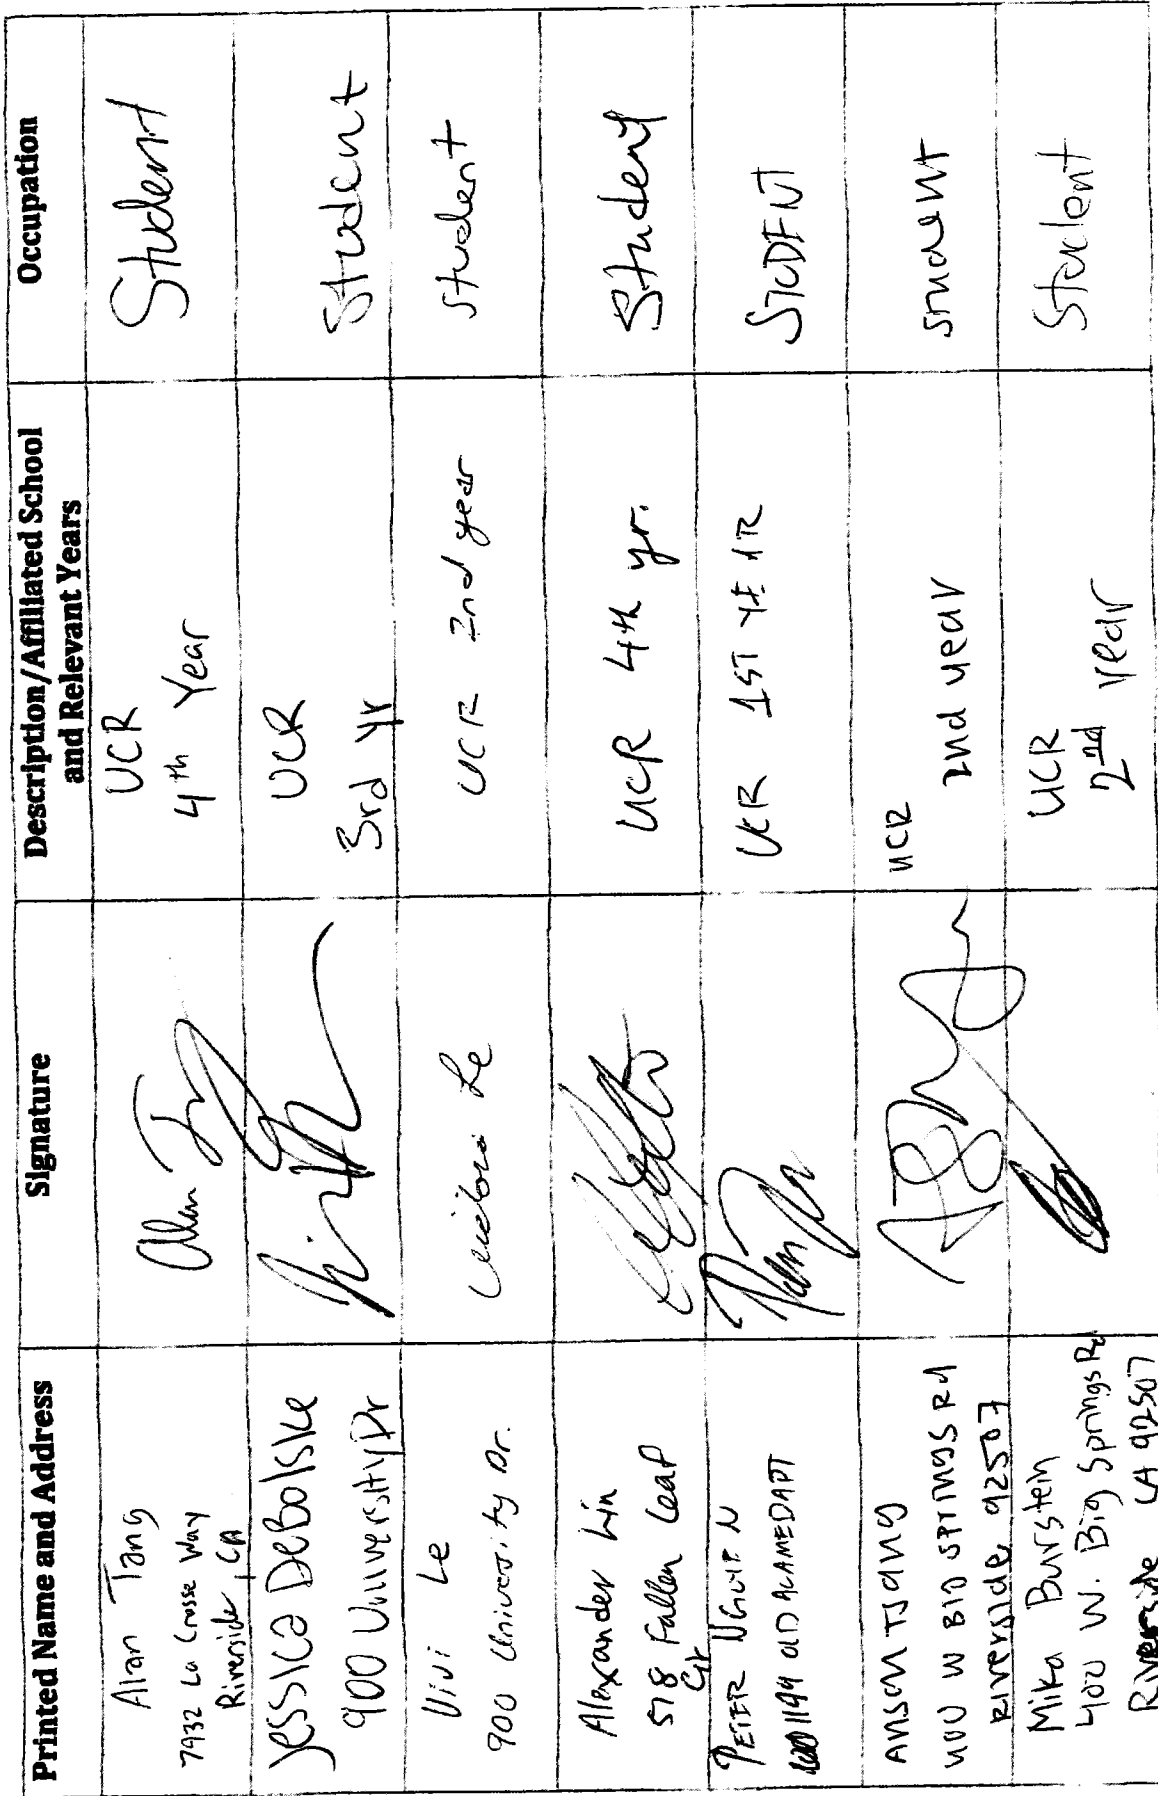 Printed Name and Address
Signature
Description/Affiliated School
and Relevant Years
Occupation
Alan Tang
7932 La Crosse Way
Riverside, CA
Alan
UCR
4th Year
Student
Jessica DeBolske
900 University Dr
UCR
3rd yr
Student
Vivi Le
900 University Dr.
Victoria Le
UCR 2nd year
Student
Alexander Lin
578 Fallen Leaf
Cir
UCR 4th yr.
Student
PETER NGUYEN
1199 OLD ALAMEDA PT
UCR 1ST YEAR
STUDENT
Anson Tsang
400 W Big Springs Rd
Riverside, 92507
UCR
2nd year
Student
Mika Burstein
400 W. Big Springs Rd
Riverside CA 92507
UCR
2nd year
Student